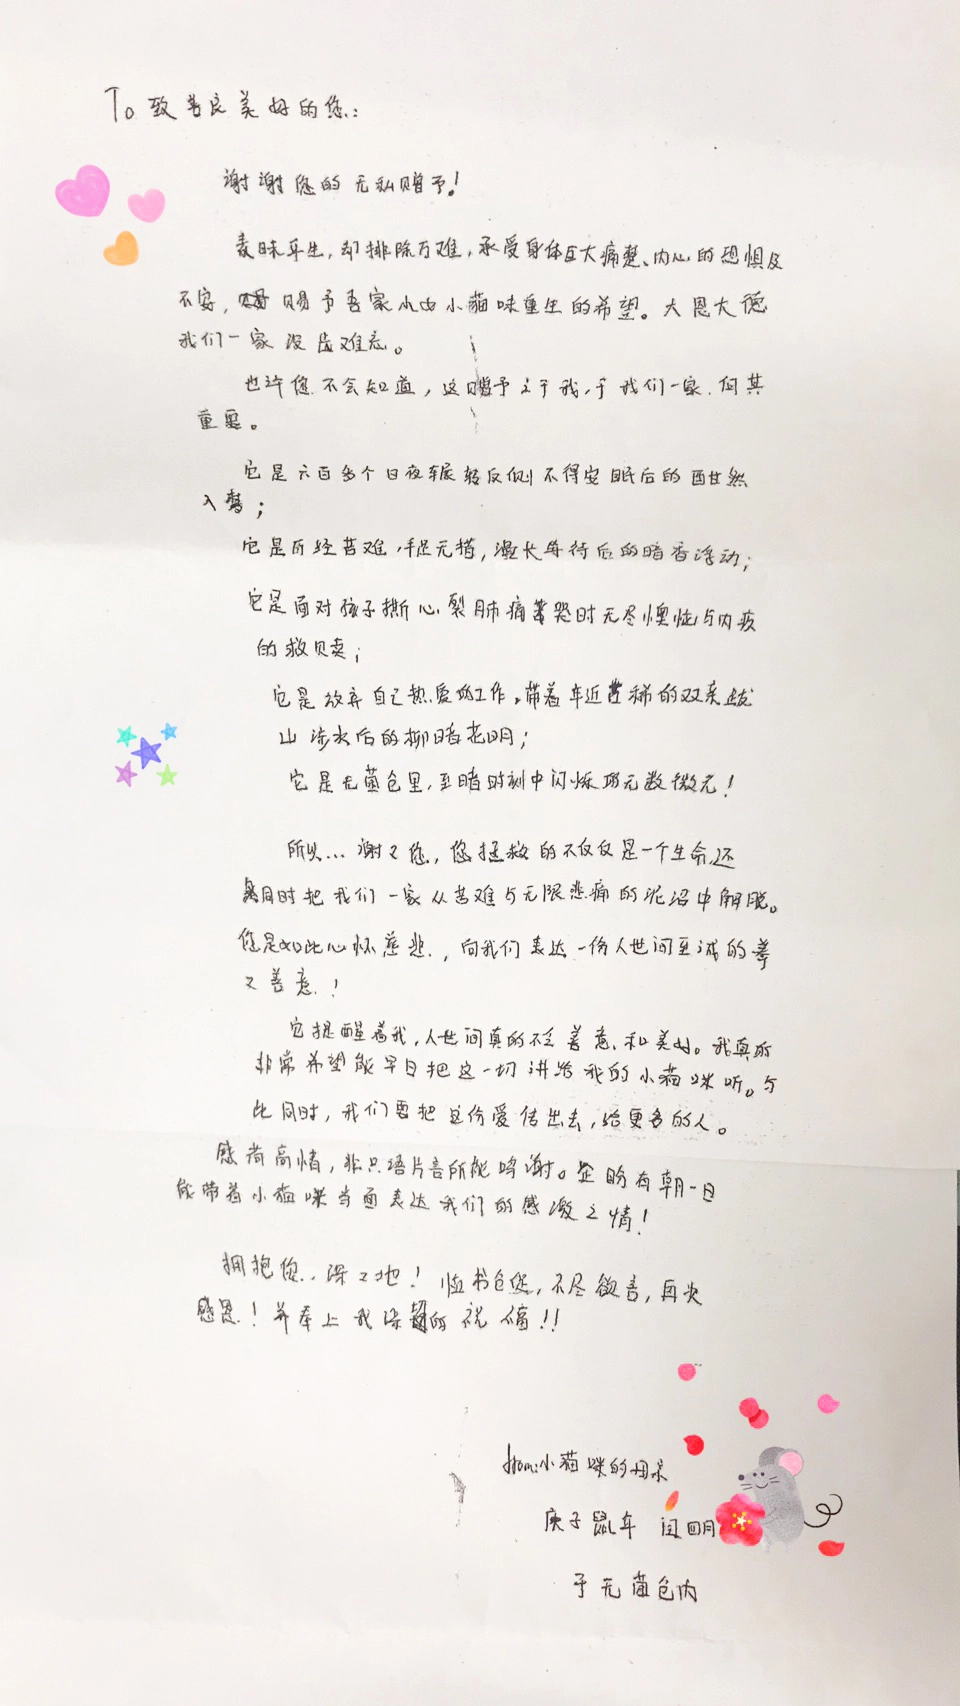 To 致善良美好的您:
谢谢您的无私赠予!
素昧平生,却排除万难,承受身体巨大痛楚、内心的恐惧及
不安, 赐予吾家小女小猫咪重生的希望。大恩大德
我们一家没齿难忘。
也许您不会知道,这赠予之于我,于我们一家.何其
重要。
它是六百多个日夜辗转反侧不得安眠后的酣然
入梦;
它是历经苦难,手足无措,漫长等待后的暗香浮动;
它是面对孩子撕心裂肺痛苦哭时无尽懊恼与内疚
的救赎;
它是放弃自己热爱的工作,带着年近古稀的双亲跋
山涉水后的柳暗花明;
它是无菌仓里,至暗时刻中闪烁的无数微光!
所以...谢々您,您拯救的不仅仅是一个生命,还
同时把我们一家从苦难与无限悲痛的泥沼中解脱。
您是如此心怀慈悲,向我们表达一份人世间至诚的善
意!
它提醒着我,人世间真的不乏善意和美好。我真的
非常希望能早日把这一切讲给我的小猫咪听。与
此同时,我们要把这份爱传出去,给更多的人。
感荷高情,非只语片言所能鸣谢。企盼有朝一日
能带着小猫咪当面表达我们的感激之情!
拥抱您..深々地! 临书仓促,不尽欲言,再次
感恩!并奉上我深的祝福!!
from:小猫咪的母亲
庚子鼠年 闰四月
于无菌仓内